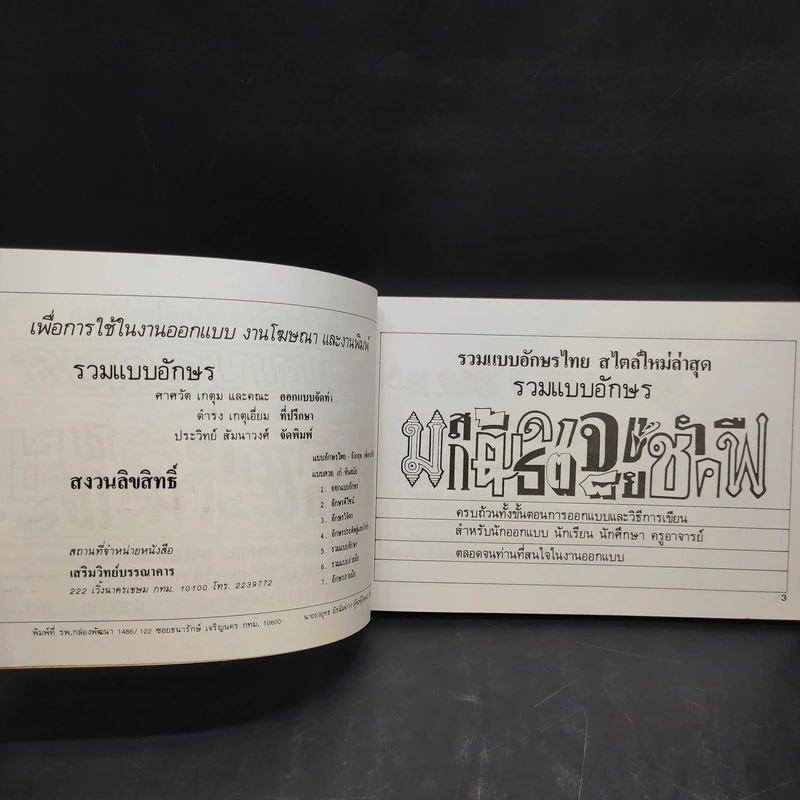 เพื่อการใช้ในงานออกแบบ งานโฆษณา และงานพิมพ์
รวมแบบอักษร
ศาศวัต เกตุม และคณะ ออกแบบจัดทำ
ดำรง เกตุเอี่ยม ที่ปรึกษา
ประวิทย์ สัมนาวงศ์ จัดพิมพ์
สงวนลิขสิทธิ์
แบบอักษรไทย - อังกฤษ
แบบสวย เก๋ ทันสมัย
1. ออกแบบอักษร
2. อักษรดีไซน์
3. อักษรวิจิตร
4. อักษรประดิษฐ์
5. รวมแบบอักษร
6. รวมแบบลายมือ
7. อักษรลายมือ
สถานที่จำหน่ายหนังสือ
เสริมวิทย์บรรณาคาร
222 เวิ้งนาครเขษม กทม. 10100 โทร. 2239772
พิมพ์ที่ รพ.กล่องพัฒนา 1486/122 ซอยธนารักษ์ เจริญนคร กทม. 10600
รวมแบบอักษรไทย สไตล์ใหม่ล่าสุด
รวมแบบอักษร
ครบถ้วนทั้งขั้นตอนการออกแบบและวิธีการเขียน
สำหรับนักออกแบบ นักเรียน นักศึกษา ครูอาจารย์
ตลอดจนท่านที่สนใจในงานออกแบบ
3